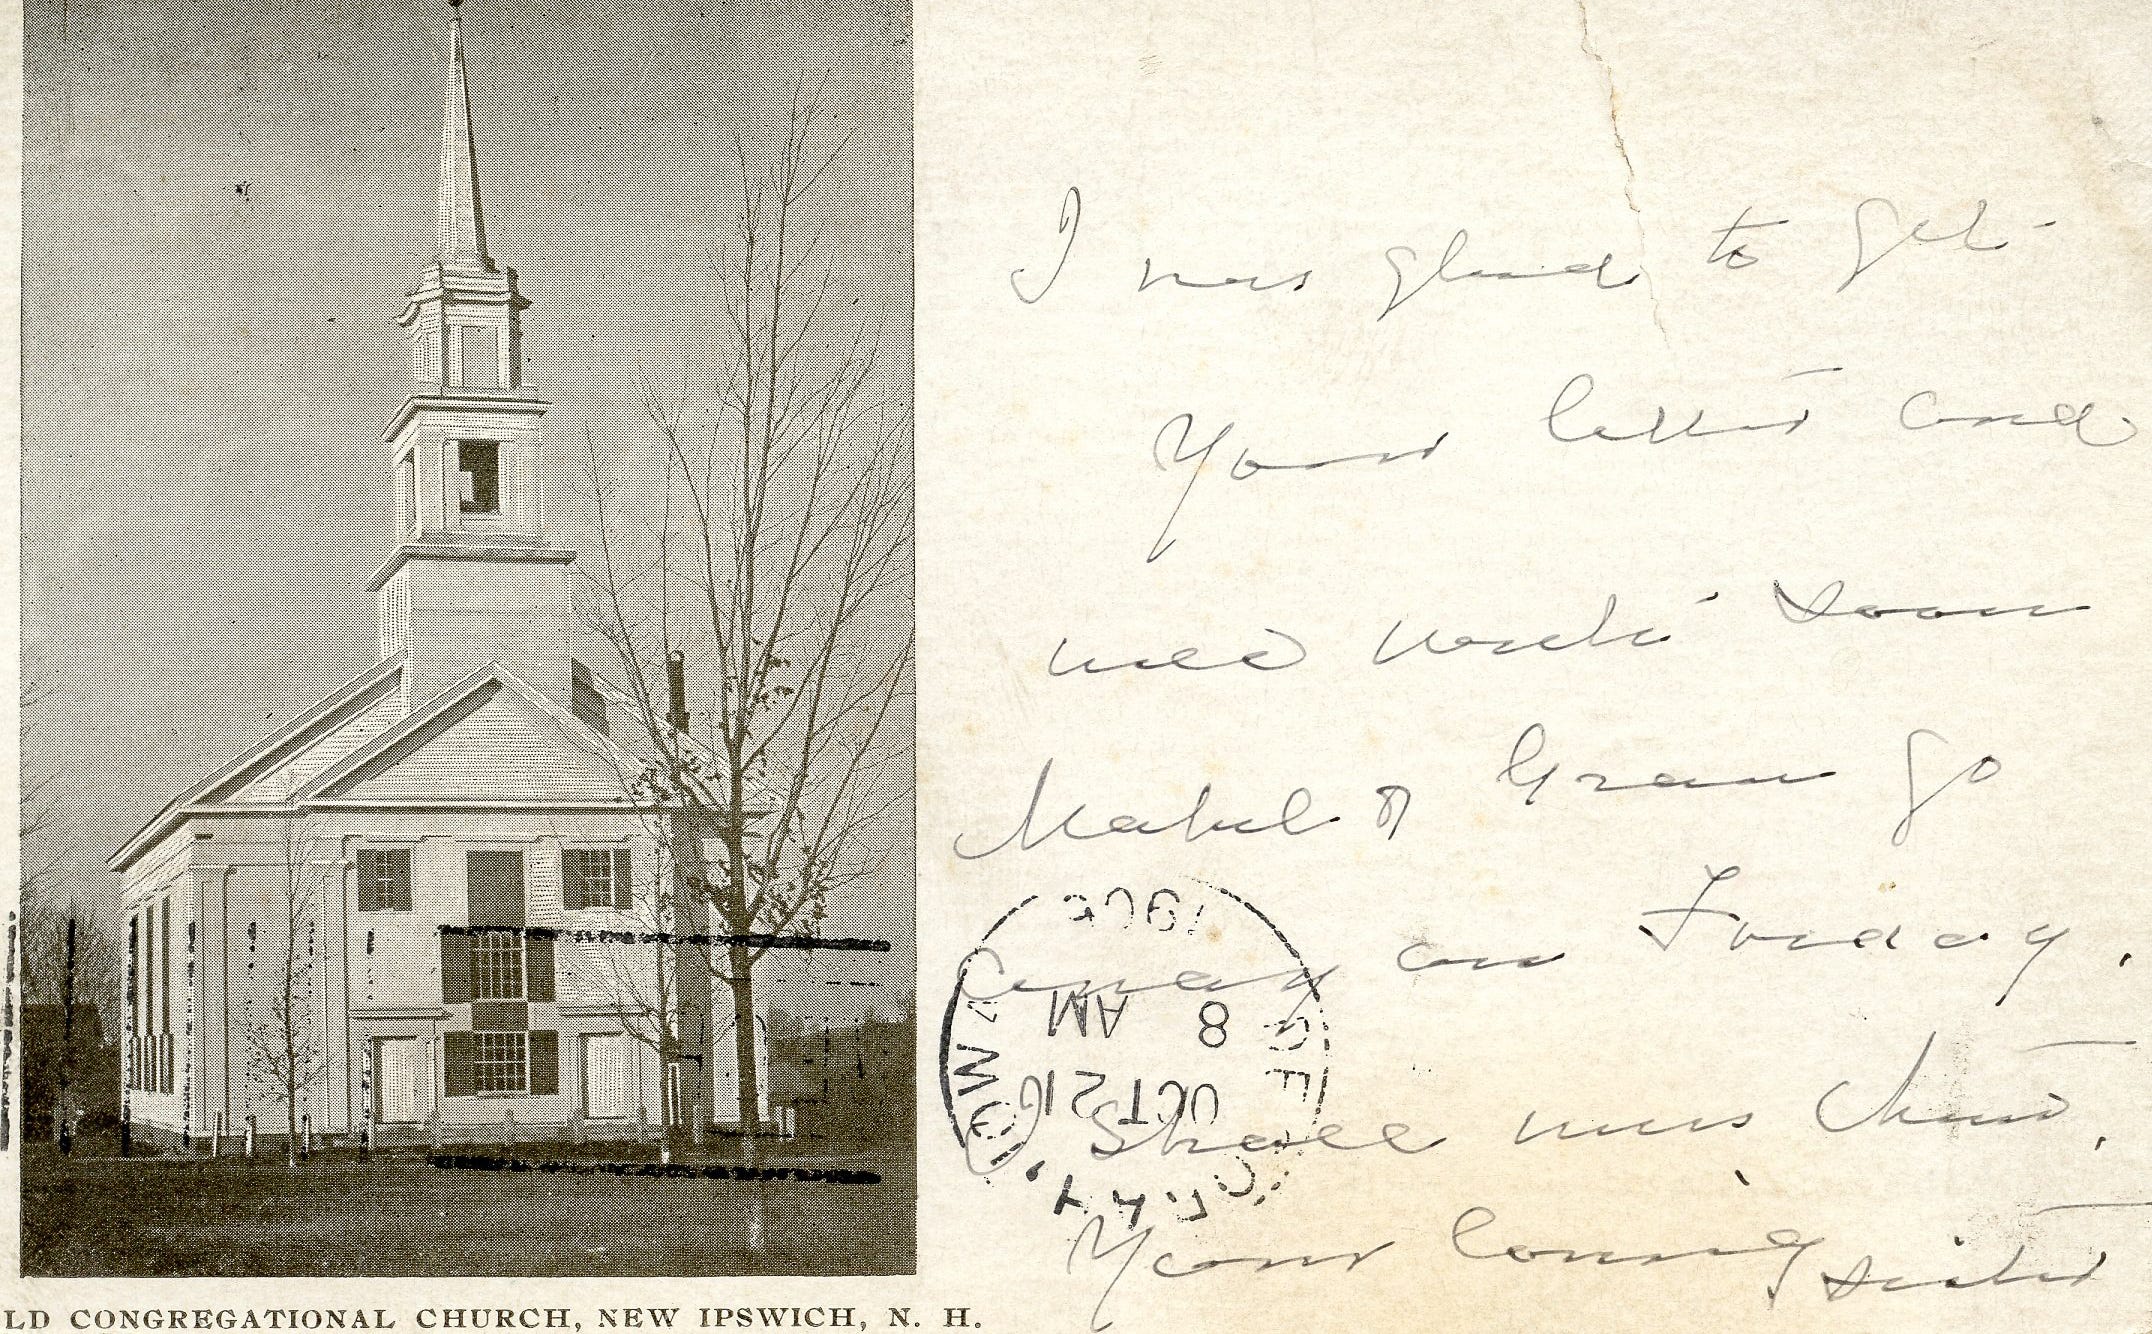 I was glad to get
Your letter and
will write soon
Mabel & Gran go
away on Friday.
Shall miss them.
Your loving sister
190
8 AM
OCT 21
LD CONGREGATIONAL CHURCH, NEW IPSWICH, N. H.